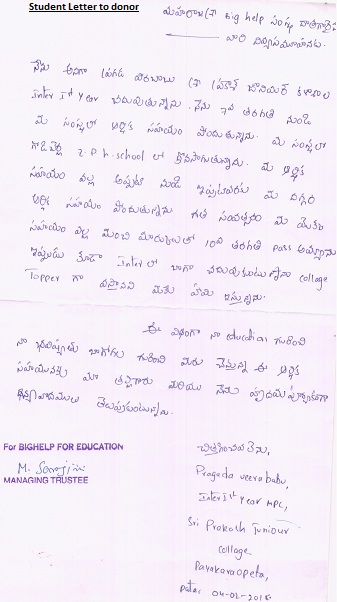 Student Letter to donor
మహారాజశ్రీ Big help సంస్థ దాతగారైన
వారి దివ్యసమూహమునకు.
నేను అనగా ప్రగడ వీరబాబు శ్రీ ప్రకాశ్ జూనియర్ కళాశాల
Inter Ist year చదువుతున్నాను. నేను 7వ తరగతి నుండి
మీ సంస్థలో ఆర్థిక సహాయం పొందుతున్నాను. మీ సంస్థలో
Z.P.H.School లో కొనసాగుతున్నాను. మీ ఆర్థిక
సహాయం వల్ల అప్పటి నుండి ఇప్పటివరకు మీ దగ్గర
ఆర్థిక సహాయం పొందుతున్నాను గత సంవత్సరం మీ యొక్క
సహాయం వల్ల మంచి మార్కులతో 10వ తరగతి pass అయ్యాను
ఇప్పుడు కూడా Inter లో బాగా చదువుకుంటున్నాను collage
Topper గా వస్తానని మీకు హామీ ఇస్తున్నాను.
ఈ విధంగా నా education గురించి
నా భవిష్యత్ బాగోగుల గురించి మీరు చేస్తున్న ఈ ఆర్థిక
సహాయానికై మా తల్లిగారు మరియు నేను హృదయపూర్వకంగా
ధన్యవాదములు తెలుపుకుంటున్నాను.
For BIGHELP FOR EDUCATION
M. Sarojini
MANAGING TRUSTEE
చిత్తగించవలెను,
Pragada veera babu,
Inter Ist year MPC,
Sri Prakash Juniour
collage
Payakaraopeta,
Date: 04-02-2016